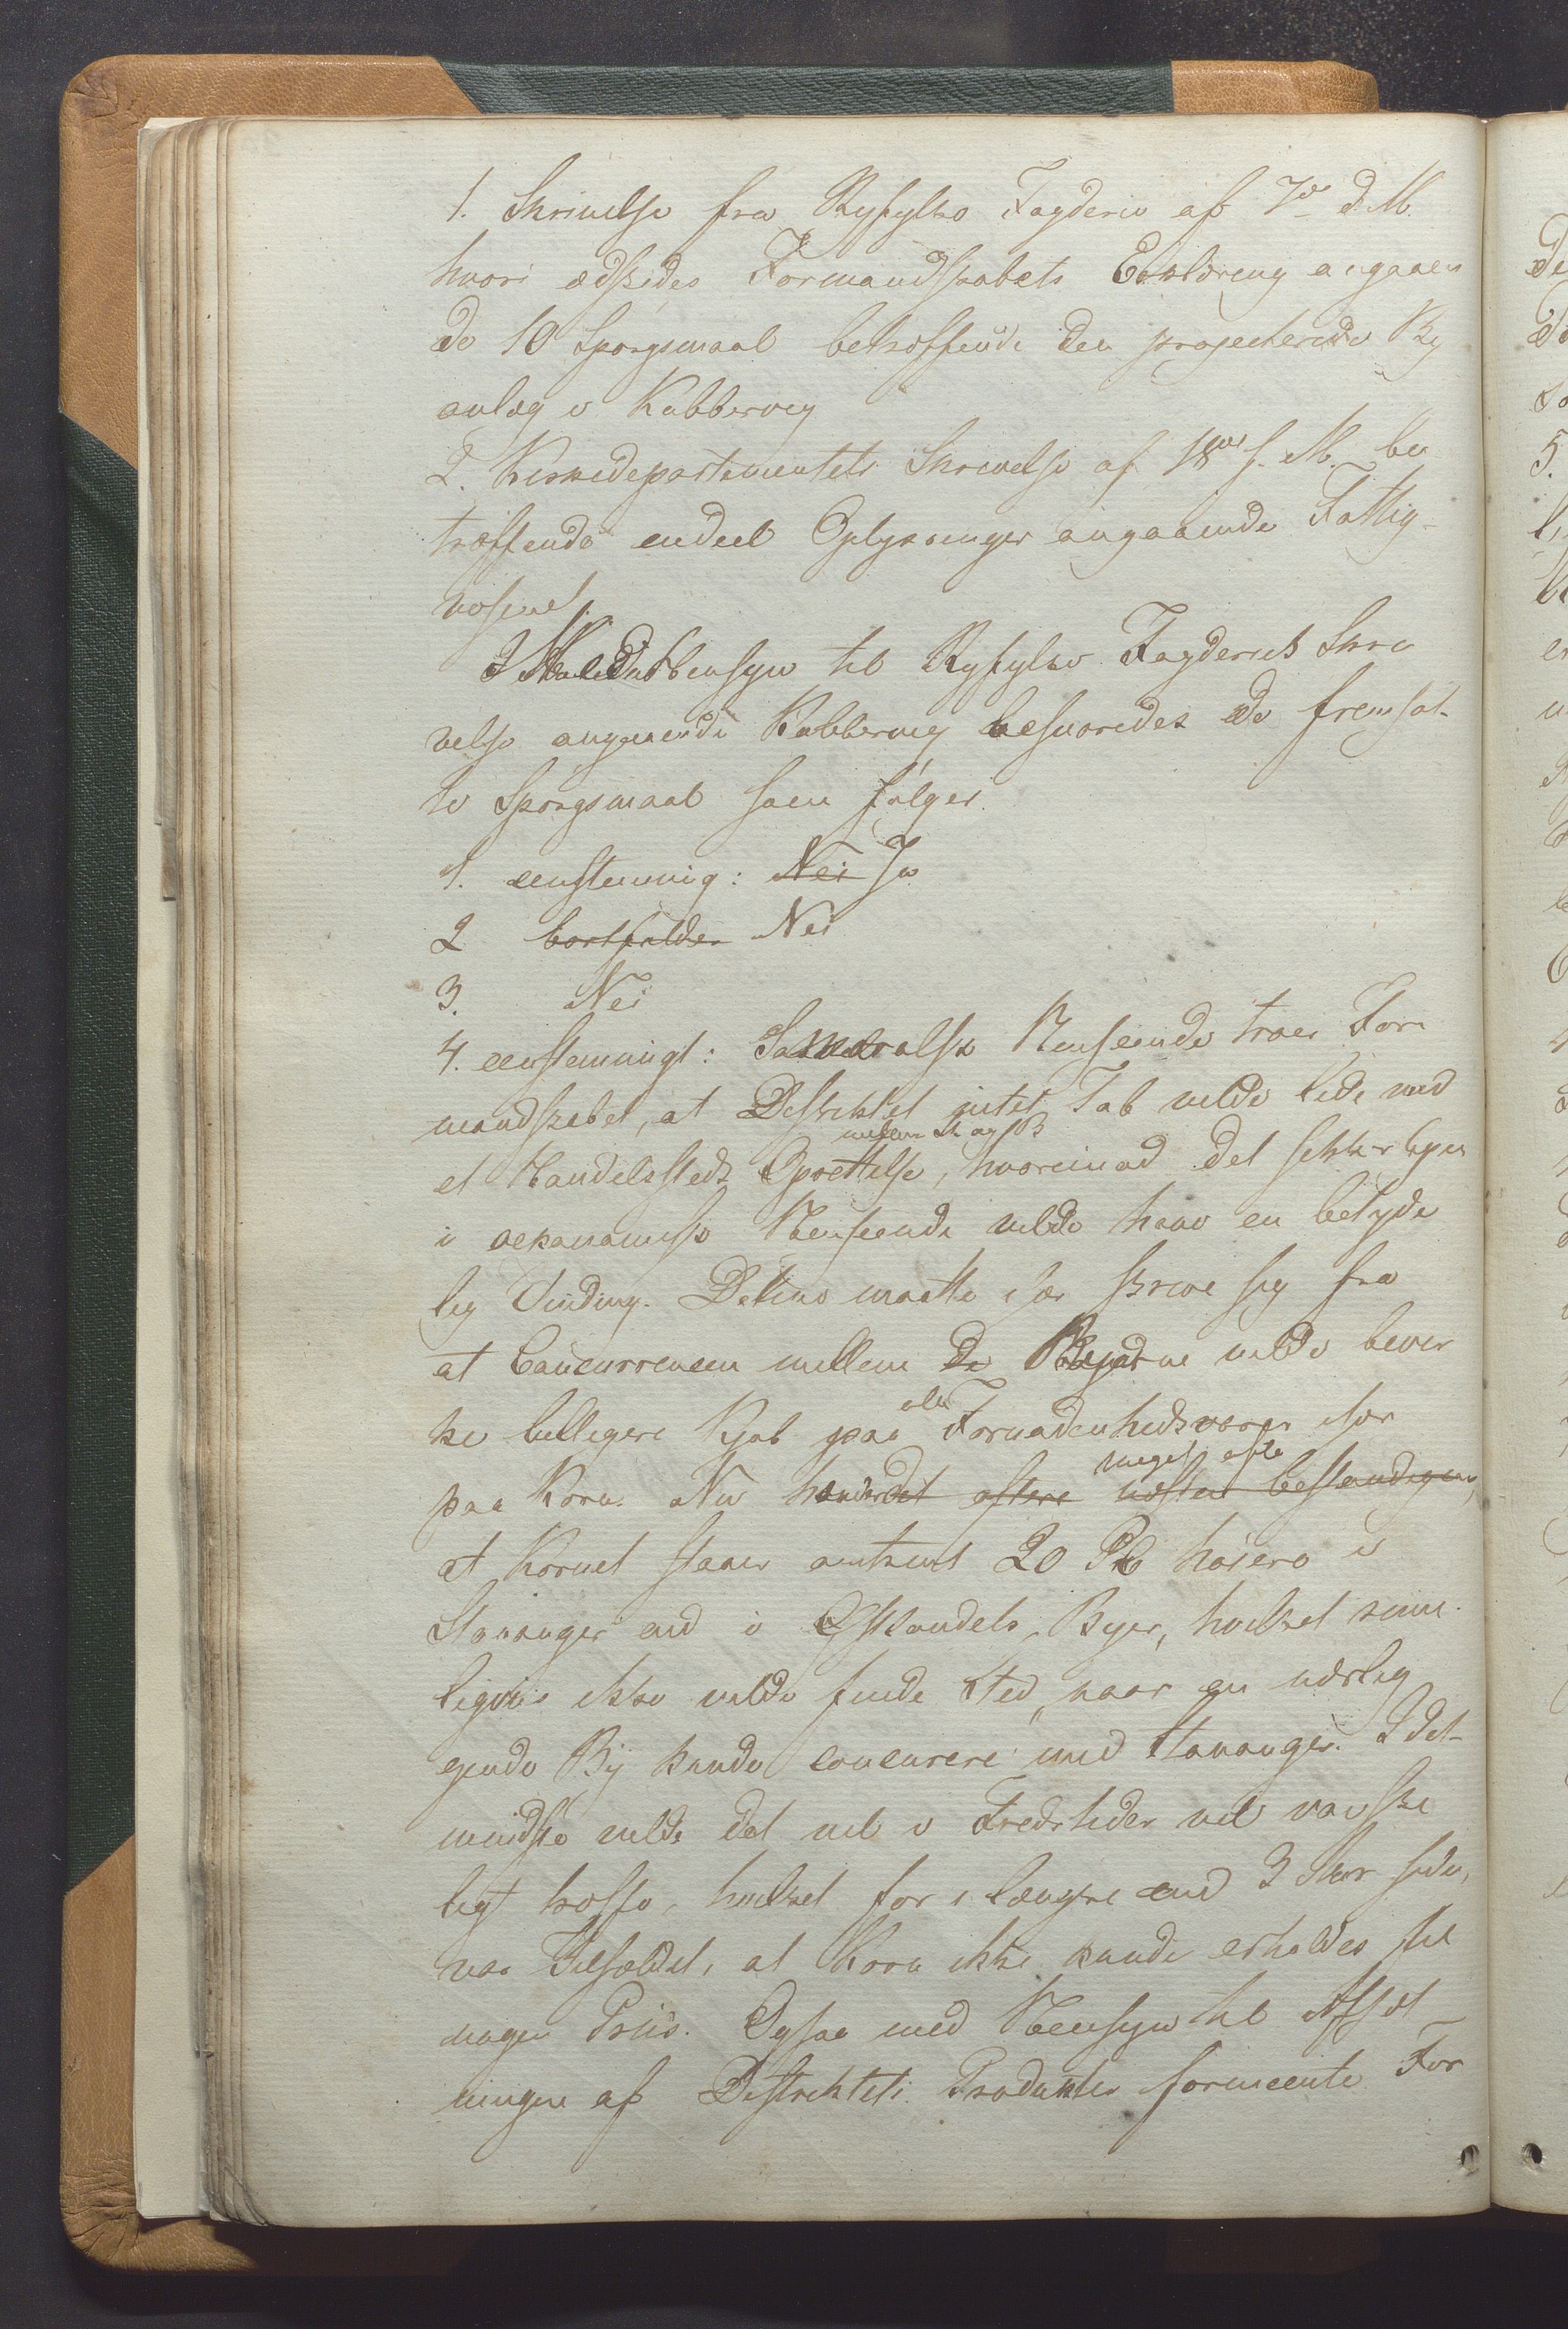 1. Skrivelse fra Ryfylke Fogderie af 7de d. M.
hvori ædskedes Formandskabets Erklæring angaaen
de 10 Spørgsmaal betræffende den projecterede By
anlæg i Kobbervig
2. Kirkedepartementets Skrivelse af 18de f. M. be
træffende endeel Oplysninger angaaende Fattig-
væsenet.
I Hensyn til Ryfylke Fogderies Skri
velse angaaende Kobbervig besvaredes de fremsat-
te Spørgsmaal som følger
1. eenstemmig: Nei Ja
2 bortfalder Nei
3. Nei
4. eenstemmigt: I Henseende troer For
mandskabet, at Distriktet intet Tab vilde lide ved
mellem St og B
et Handelssteds Oprettelse, hvorimod det sikkerligen
i oekonomisk Henseende vilde have en betyde
lig Vinding. Dette maatte især skrive sig fra
at Concurrencen mellem de Byerne vilde bevir
ke billigere Kjøb paa alle Fornødenhedsvarer især
meget ofte
paa Korn. Nu hænder det oftere næsten bestandigen,
at Kornet staaer omtrent 20 Sk høiere i
Stavanger end i Østlandets Byer, hvilket rime
ligviis ikke vilde finde Sted, naar en nærlig
gende By kunde concurere med Stavanger. Idet-
mindste vilde det vel i Fredstider vel vanske
ligt træffe, hvilket for i længre end 3 Aar siden,
var Tilfældet, at Korn ikke kunde erholdes til
nogen Priis. Ogsaa med Hensyn til Afsæt-
ningen af Distriktets Produkter formeente For